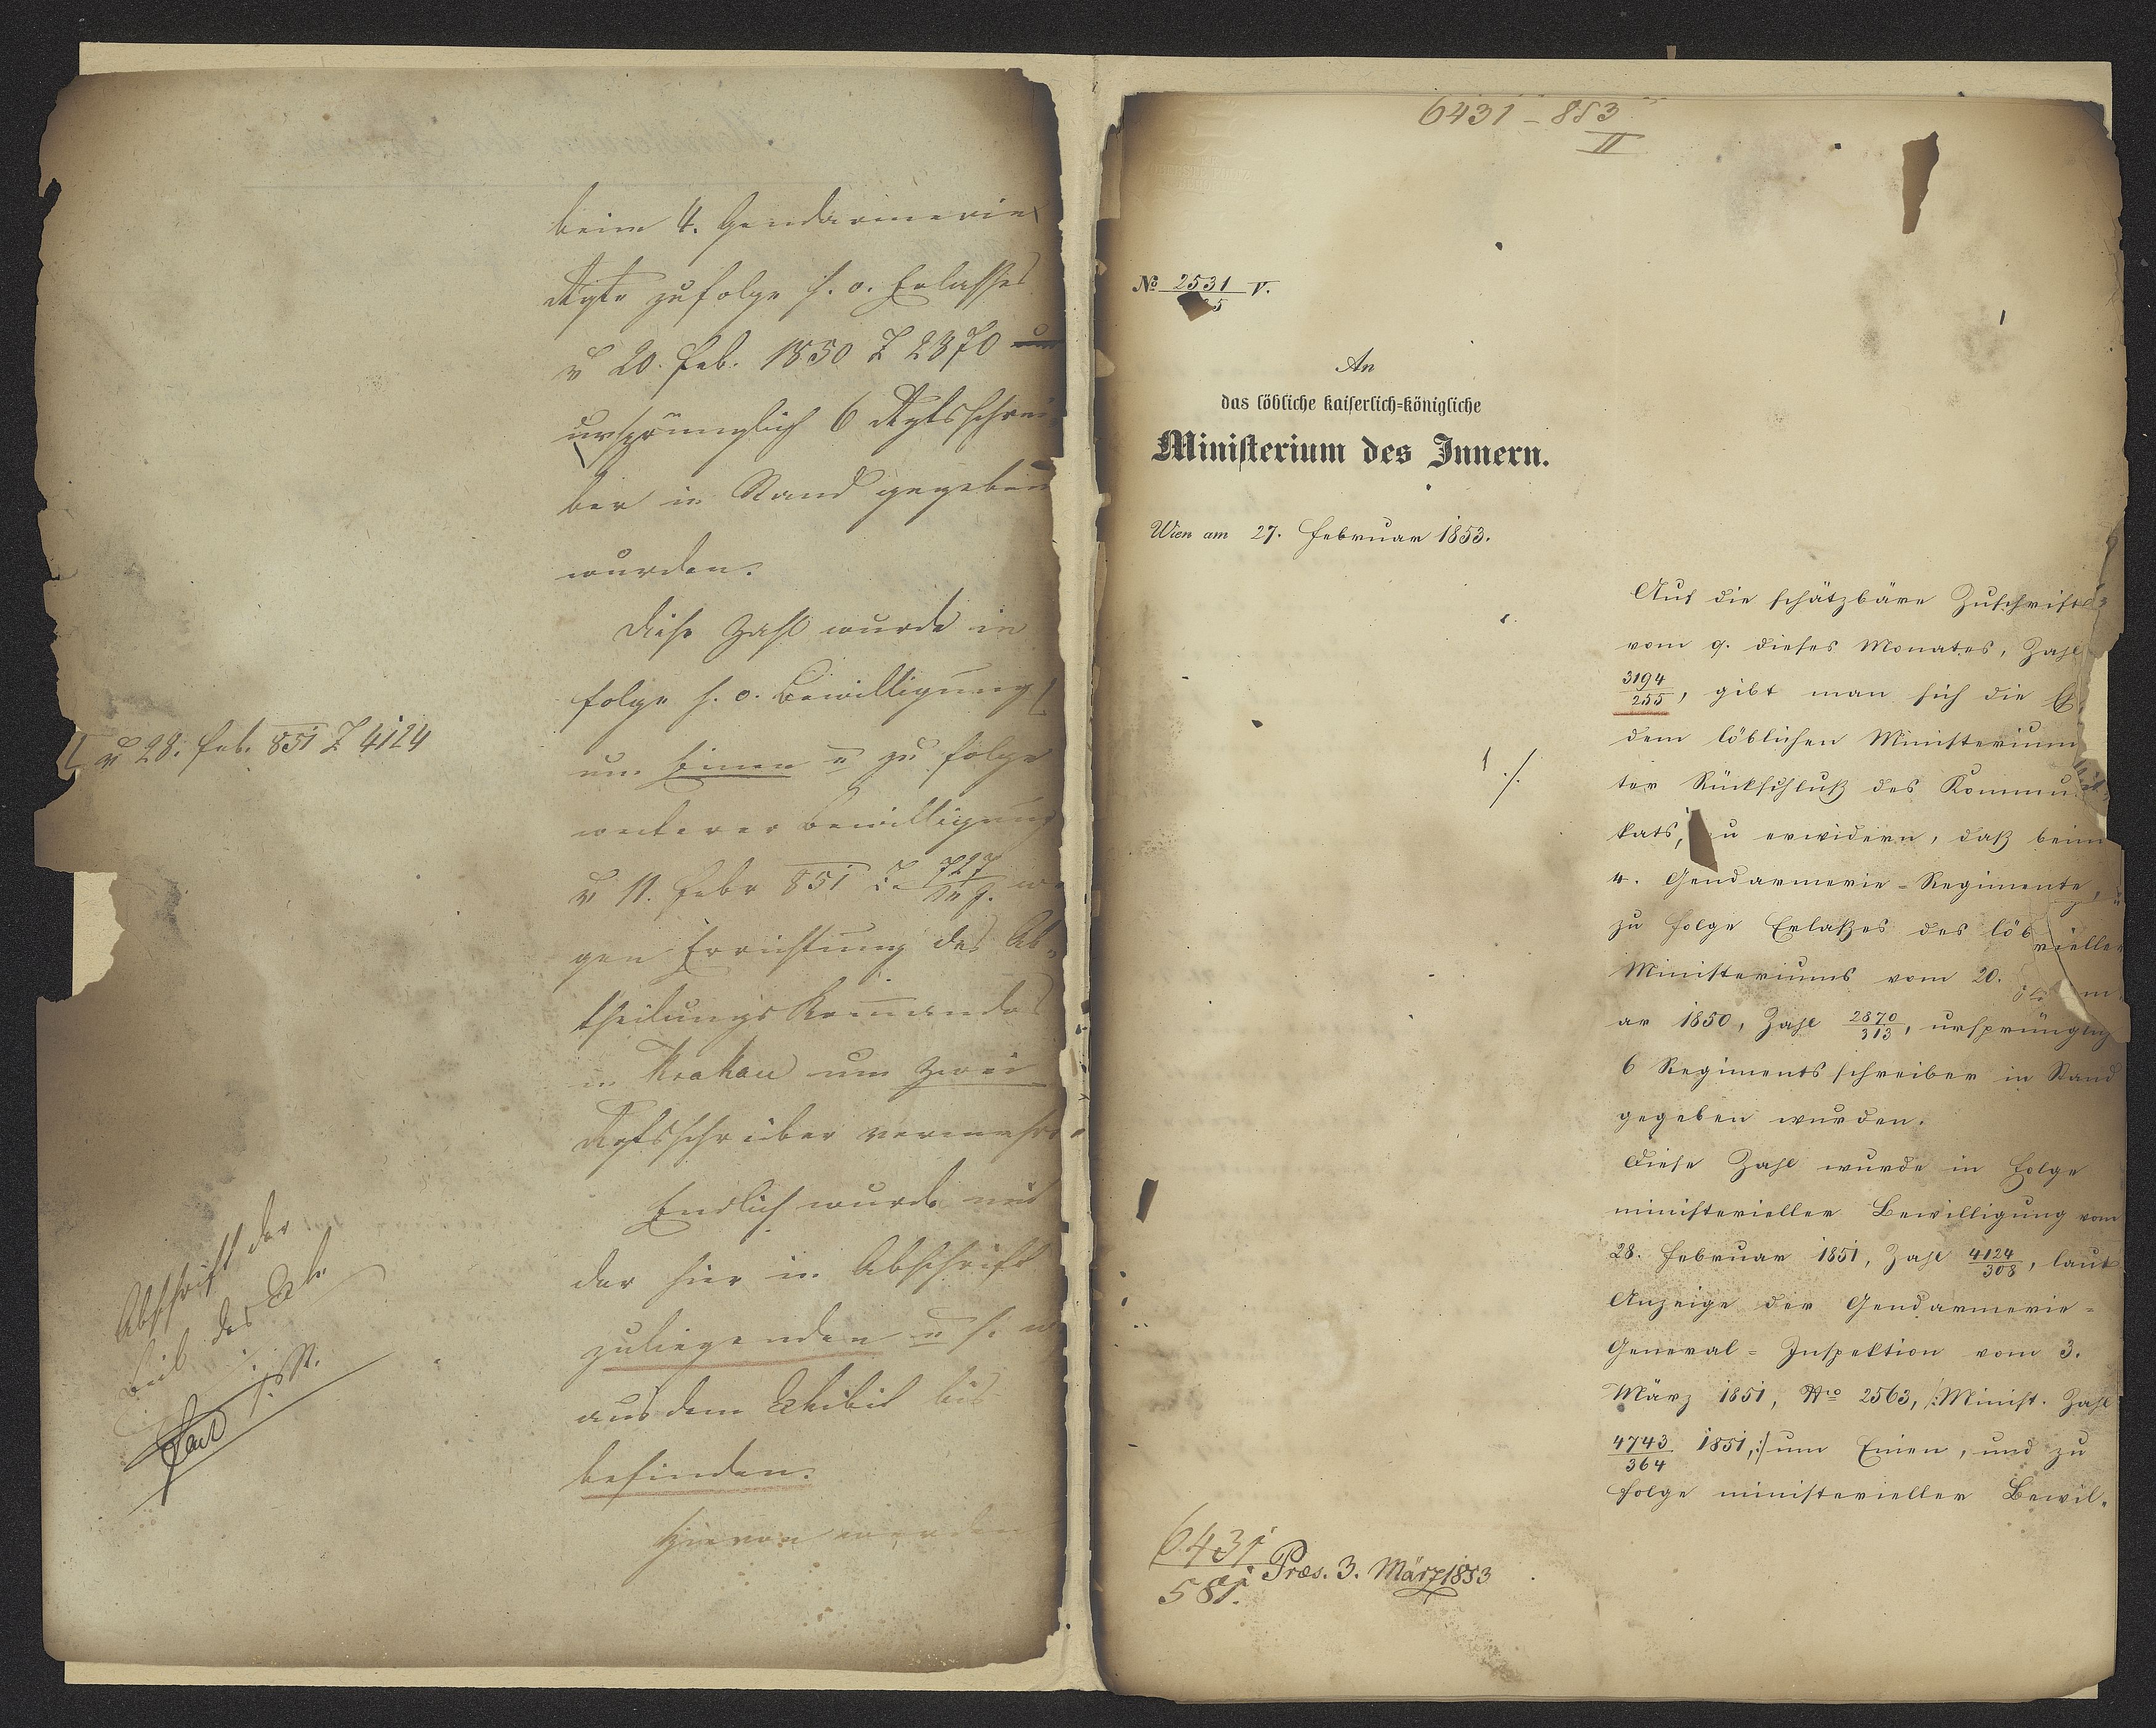 beim 4. Gendarmerie
Rgte zufolge h. o. Erlasses
v 20. Feb. 1850 Z 2870
ursprünglich 6 Rgtsschrei
ber in Stand gegeben
wurden.
Diese Zahl wurde in
folge h. o. Bewilligung
v 28. Feb. 851 Z 4124
um Einen u zu folge
weiterer Bewilligung
v 11. Febr 851 Z 727
gen Errichtung des Ab„
theilungs Komandos
in Krakau um zwei
Rgtsschreiber vermehrt
Endlich wurde mit
der hier in Abschrift
zuliegenden u h.
aus dem Exhibit bis
befinden.
Hievon werden
Abschrift der
Beil des Exh.
./.
6431 – 853
II
№ 2531 V.
5
An
das löbliche kaiserlich=königliche
Ministerium des Innern.
Wien am 27. Februar 1853.
1 ./.
Auf die schätzbare Zuschrift
vom 9. dieses Monates, Zahl
3194
255, gibt man sich die E
dem löblichen Ministerium
ter Rückschluß des Kommu
kats, zu erwidern, daß beim
4. Gendarmerie=Regimente,
zu Folge Erlaßes des löb
Ministeriums vom 20.
ar 1850, Zahl 2870
313, ursprünglich
6 Regimentsschreiber in Stand
gegeben wurden.
Diese Zahl wurde in Folge
ministerieller Bewilligung vom
28. Februar 1851, Zahl 4124
308, laut
Anzeige der Gendarmerie=
General=Inspektion vom 3.
März 1851, Nro 2563, /:Minist. Zahl
4743
364 1851,:/ um Einen, und zu
Folge ministerieller Bewil„
6431
581. Præs. 3. März 1853